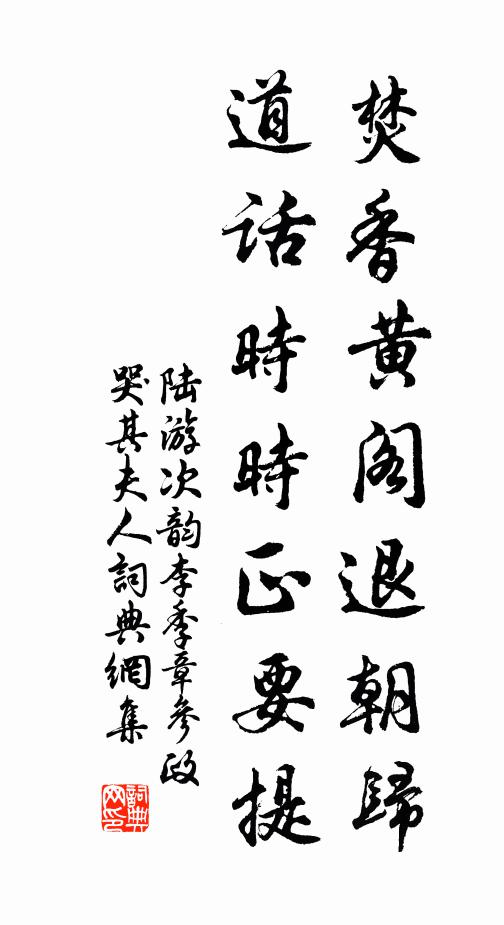 焚香黄阁退朝歸
道话時時正要提
陆游次韵李季章參政
哭其夫人詞典網集
詞典网印